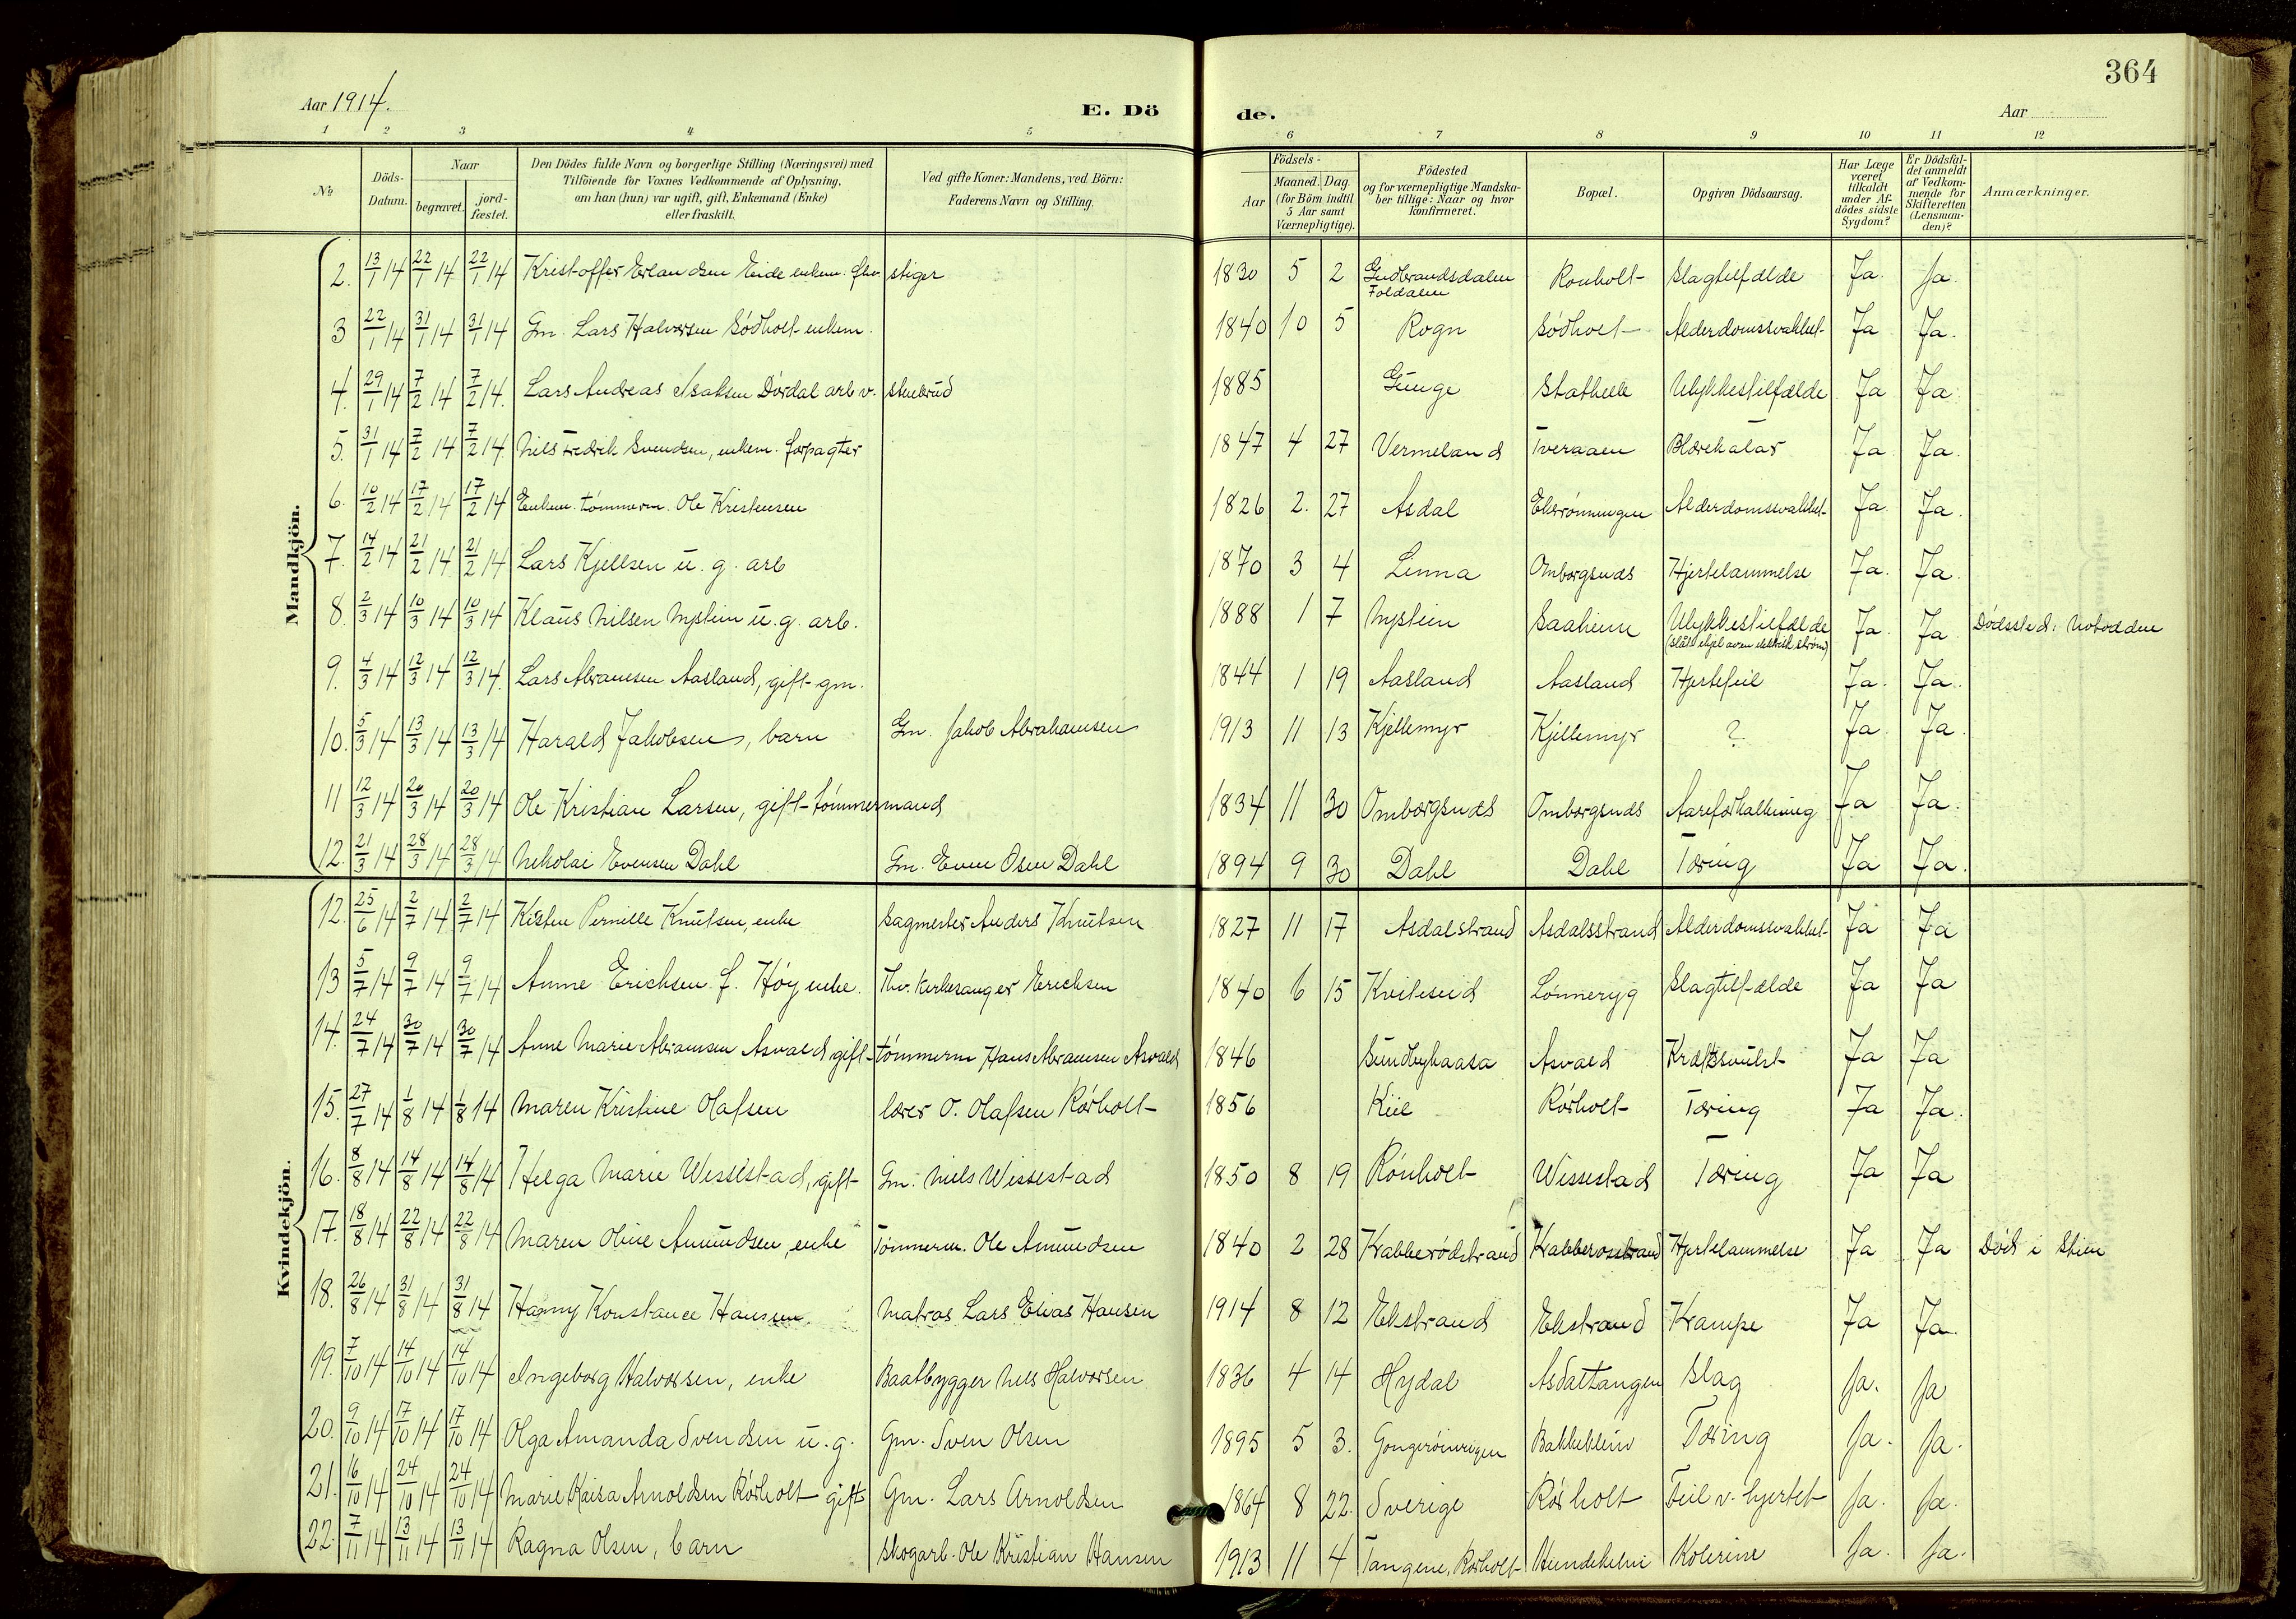 364
Aar 1914.
E. Dö de.
Aar
1 2 3 4 5 6 7 8 9 10 11 12
No.
Döds-Datum.
Naar
begravet. jord-fæstet.
Den Dödes fulde Navn og borgerlige Stilling (Næringsvei) med
Tilföiende for Voxnes Vedkommende af Oplysning,
om han (hun) var ugift, gift, Enkemand (Enke)
eller fraskilt.
Ved gifte Koner: Mandens, ved Börn:
Faderens Navn og Stilling.
Födsels-
Aar
Maaned. Dag.
(for Börn indtil
5 Aar samt
Værnepligtige).
Födested
og for værnepligtige Mandska-
ber tillige: Naar og hvor
konfirmeret.
Bopæl.
Opgiven Dödsaarsag.
Har Læge
været
tilkaldt
under Af-
dödes sidste
Sygdom?
Er Dödsfal-
det anmeldt
af Vedkom-
mende for
Skifteretten
(Lensman-
den)?
Anmærkninger.
Mandkjön.
2. 13/1 14 22/1 14 22/1 14 Kristoffer Erlandsen Eide enkem. stiger 1830 5 2 Gudbrandsdalen Foldalen Ronholt Slagtilfælde Ja. Ja.
3 22/1 14 31/1 14 31/1 14 Gm. Lars Halvorsen Sódholt enkem. 1840 10 5 Rogn Sódholt Alderdomssvakhet Ja Ja.
4. 29/1 14 7/2 14 7/2 14. Lars Andreas Isaksen Dórdal arb v. stenbrud 1885 Gunge Stathelle Ulykkestilfælde Ja Ja
5. 31/1 14 7/2 14 7/2 14 Nils Fredrik Svendsen, enkem. forpagter 1847 4 27 Vermeland Tveraaen Blærekatar Ja Ja
6. 10/2 14 17/2 14 17/2 14 Enkem. tómmerm. Ole Kristensen 1826 2. 27 Asdal Ekerónningen Alderdomssvakhet Ja Ja.
7. 14/2 14 21/2 14 21/2 14 Lars Kjellsen u. g. arb 1870 3 4 Linna Omborgsnæs Hjertelammelse Ja. Ja.
8. 2/3 14 10/3 14 10/3 14 Klaus Nilsen Nystein u. g. arb. 1888 1 7 Nystein Saaheim Ulykkestilfælde (slått ihjel av en elektrisk strøm) Ja Ja Dódssted: Notodden
9. 4/3 14 12/3 14 12/3 14. Lars Abramsen Aasland, gift gm. 1844 1 19 Aasland Aasland Hjertefeil Ja. Ja.
10. 5/3 14 13/3 14 13/3 14 Harald Jakobsen, barn Gm. Jakob Abrahamsen 1913 11 13 Kjellemyr Kjellemyr ? Ja Ja
11 12/3 14 20/3 14 20/3 14 Ole Kristian Larsen, gift tómmermand 1834 11 30 Omborgsnæs Omborgsnæs Aareforkalkning Ja Ja.
12. 21/3 14 28/3 14 28/3 14 Nikolai Evensen Dahl Gm. Even Osen Dahl 1894 9 30 Dahl Dahl Tæring Ja Ja.
Kvindekjön.
12. 25/6 14 2/7 14 2/7 14 Kisten Pernille Knutsen, enke Sagmester Anders Knutsen 1827 11 17 Asdalstrand Asdalsstrand Alderdomssvakhet Ja Ja
13 5/7 14 9/7 14 9/7 14 Anne Erichsen f. Hóy enke. Fhv. kirkesanger Erichsen 1840 6 15 Kviteseid Lónneryg Slagtilfælde Ja Ja
14. 24/7 14 30/7 14 30/7 14 Anne Marie Abramsen Asvald gift tómmerm Hans Abramsen Asvald 1846 Sundbykaasa Asvald Kræftsvulst Ja Ja
15. 27/7 14 1/8 14 1/8 14 Maren Kristine Olafsen lærer O. Olafsen Rórholt 1856 Kiil Rórholt Tæring Ja Ja.
16. 8/8 14 14/8 14 14/8 14 Helga Marie Wissestad, gift Gm. Niels Wissestad 1850 8 19 Rónholt Wissestad Tæring Ja Ja
17. 18/8 14 22/8 14 22/8 14 Maren Oline Amundsen, enke Tómmerm. Ole Amundsen 1840 2 28 Krabberódstrand Krabberøstrand Hjertelammelse Ja Ja Dód i Skien
18. 26/8 14 31/8 14 31/8 14 Hanny Konstance Hansen Matros Lars Elias Hansen 1914 8 12 Ekstrand Ekstrand Krampe Ja Ja.
19. 7/10 14 14/10 14 14/10 14 Ingeborg Halvorsen, enke Baatbygger Nels Halvorsen 1836 4 14 Hydal Asdaltangen Slag Ja. Ja
20. 9/10 14 17/10 14 17/10 14 Olga Amanda Svendsen u. g. Gm. Sven Olsen 1895 5 3. Gongeröiningen Bakkeklein Tæring Ja. Ja.
21. 16/10 14 24/10 14 24/10 14 Marie Kaisa Arnoldsen Rórholt gift Gm. Lars Arnoldsen 1864 8 22. Sverige Rórholt Feil v. hjertet Ja. Ja.
22. 7/11 14 13/11 14 13/11 14 Ragna Olsen, barn Skogarb. Ole Kristian Hansen 1913 11 4 Tangene, Rórholt Hundekelvi Kolerine Ja. Ja.